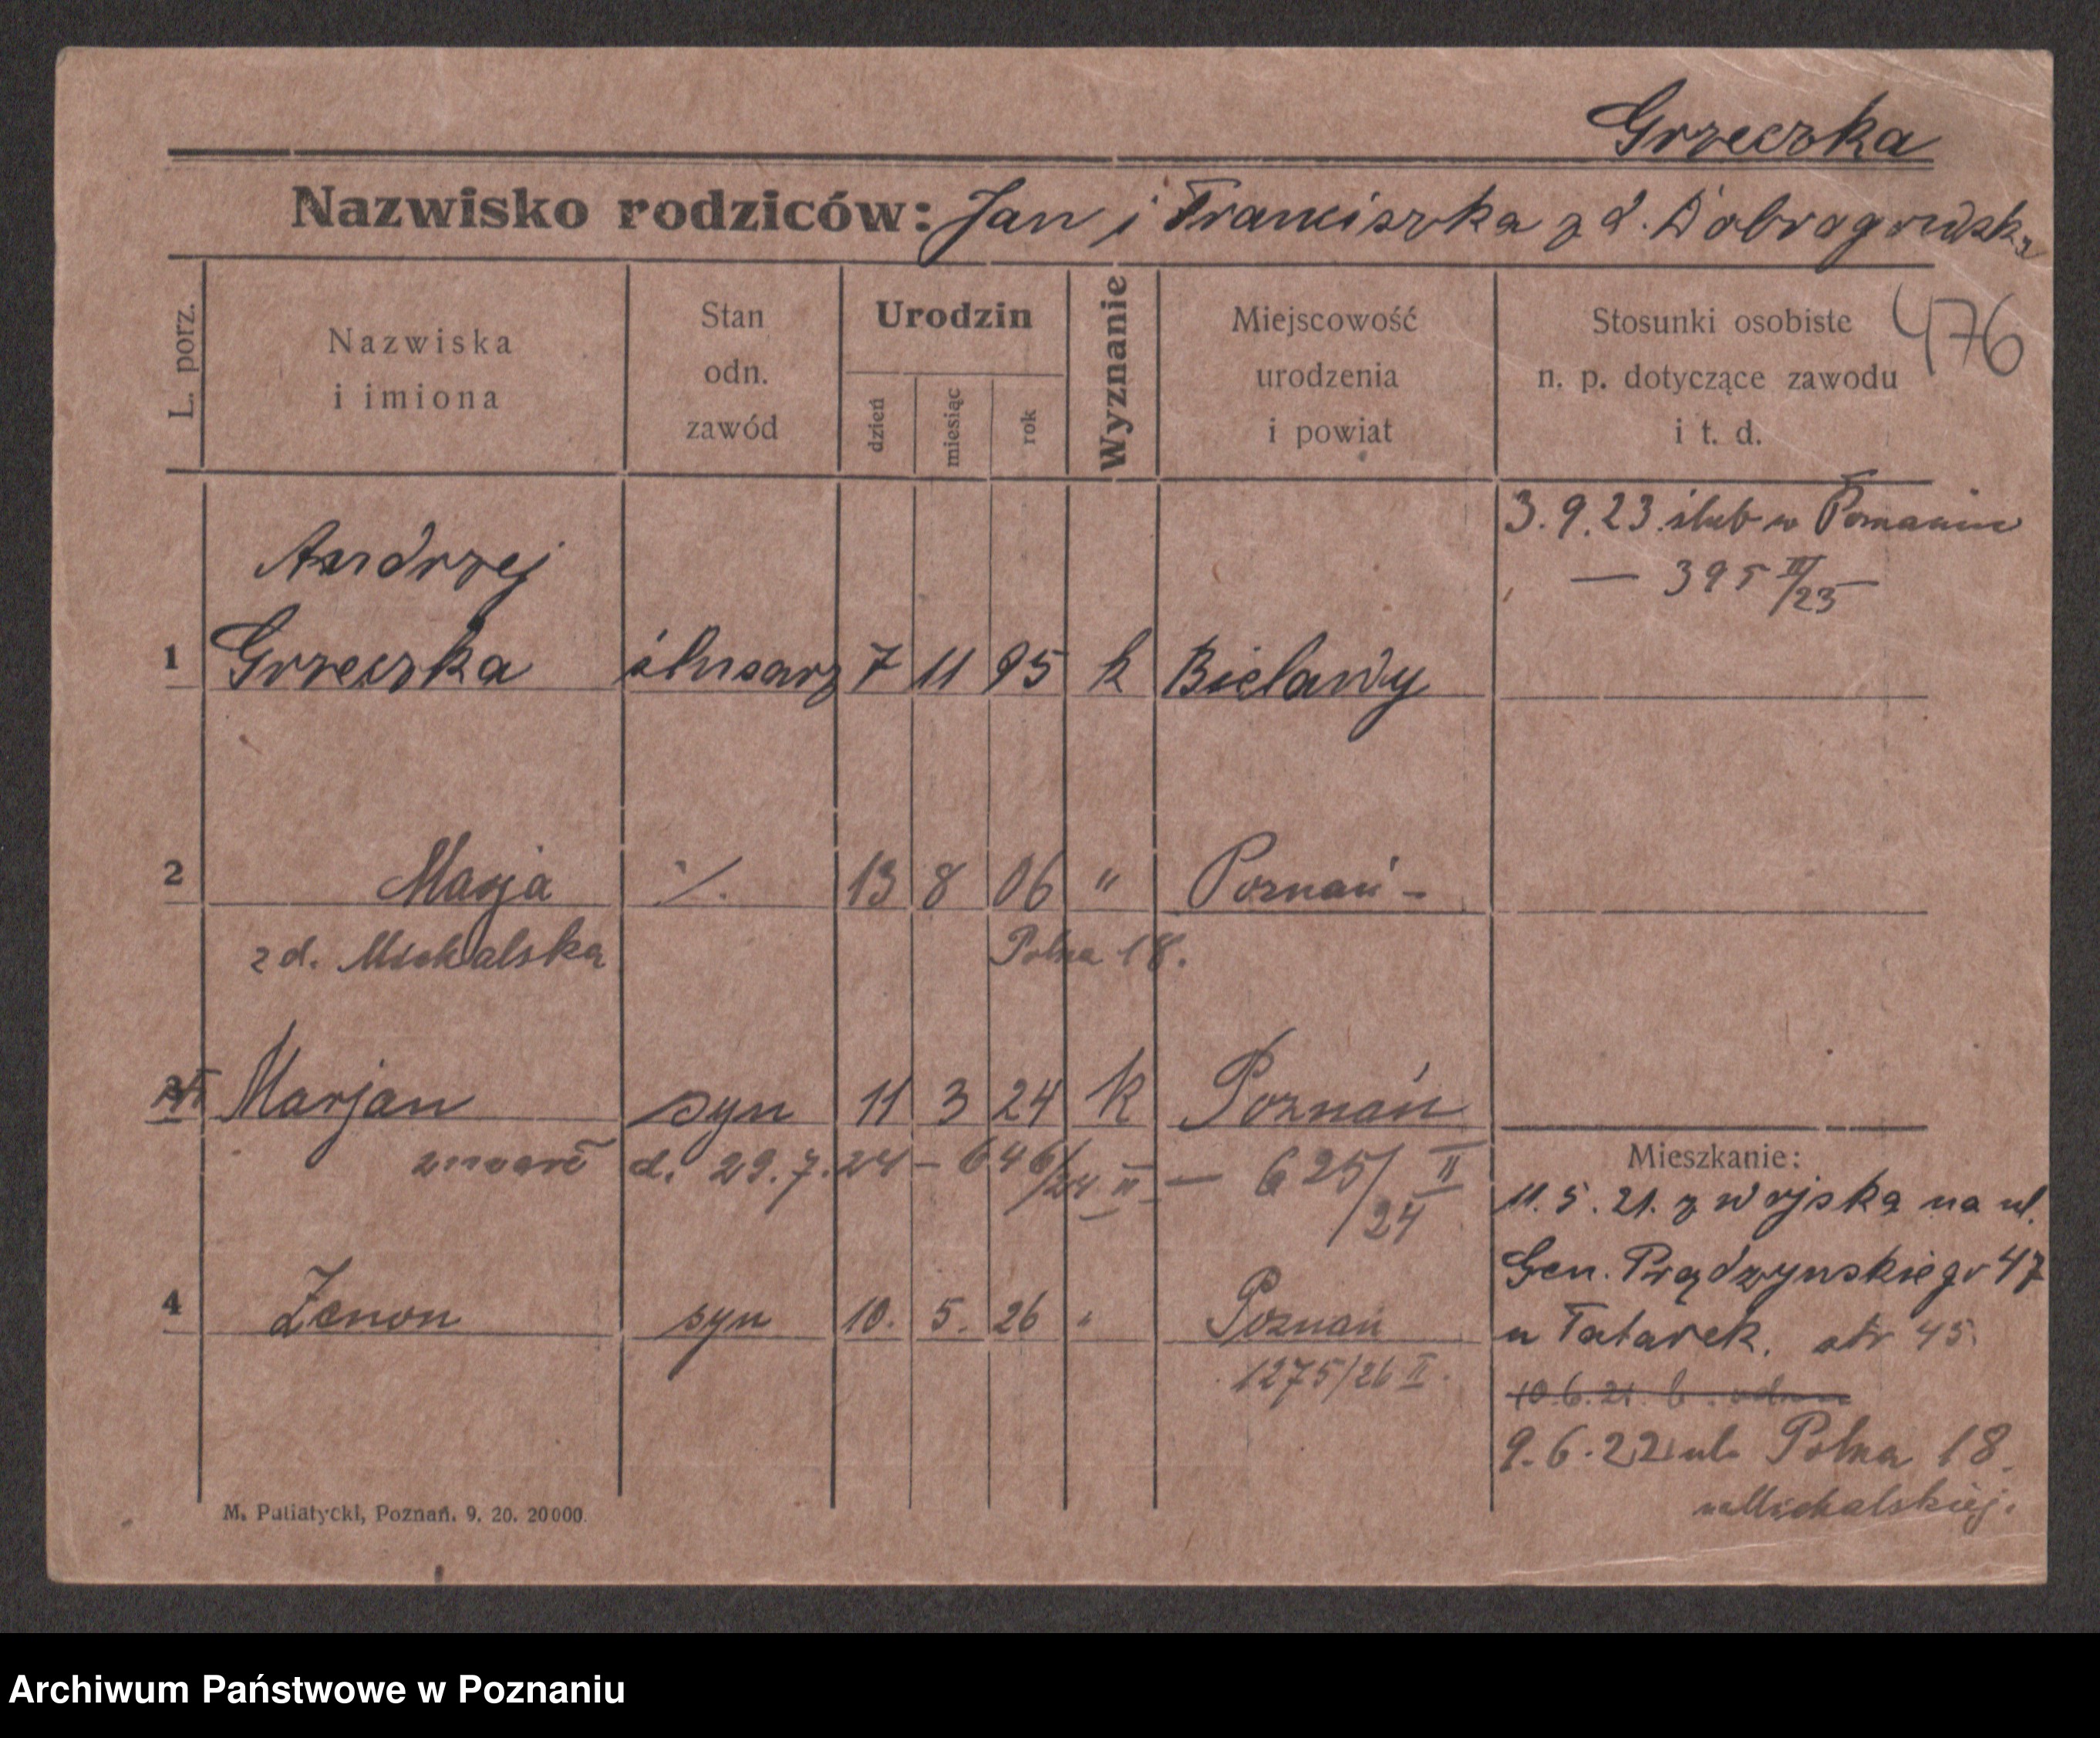 Grzeczka
Nazwisko rodziców: Jan i Franciszka z d. Dobrogowska
476
L. porz.
Nazwiska
i imiona
Stan
odn.
zawód
Urodzin
dzień
miesiąc
rok
Wyznanie
Miejscowość
urodzenia
i powiat
Stosunki osobiste
n. p. dotyczące zawodu
i t. d.
3.9.23 ślub w Poznaniu
— 395 II/23 —
Andrzej
1 Grzeczka ślusarz 7 11 95 k Bielawy
2 Marja ./. 13 8 06 " Poznań -
z d. Michalska Polna 18.
Marjan syn 11 3 24 k Poznań
zmarł d. 29.7.24 - 646/24 II — 625/24 II
4 Zenon syn 10. 5. 26 " Poznań
1275/26 II.
Mieszkanie:
11.5.21. z wojska na ul.
Gen. Prądzynskiego 47
u Tatarek. str 45
10.6.21. b.
9.6.22 ul. Polna 18.
u Michalskiej.
M. Putiatycki, Poznań. 9. 20. 20000.
Archiwum Państwowe w Poznaniu